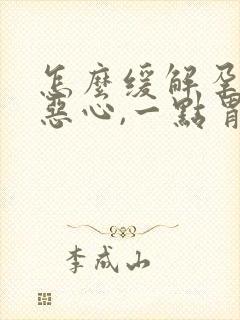 怎麼緩解孕
惡心,一點胃
李成山